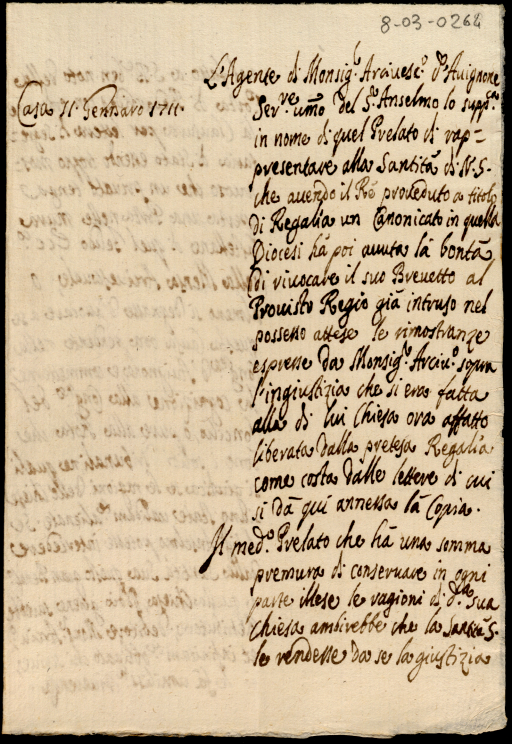 8-03-0264
L'Agente di Monsig.r Arcivesc.o d'Avignone
Casa 11. Gennaro 1711.
Ser.re umo del S.r Anselmo lo supp.ca
in nome di quel Prelato di rap=
presentare alla Santità di N. S.
che avendo il Rè proveduto a titolo
di Regalia un Canonicato in quella
Diocesi hà poi avuta la bontà
di rivocare il suo Brevetto al
Provisto Regio già intruso nel
possesso attese le rimostranze
espresse da Monsig.r Arciv.o sopra
l'ingiustizia che si era fatta
alla di lui Chiesa ora affatto
liberata dalla pretesa Regalia
come costa dalle lettere di cui
si dà quì annessa la Copia.
Il med.o Prelato che hà una somma
premura di conservare in ogni
parte illese le ragioni di d.a sua
Chiesa ambirebbe che la Santità S.
le rendesse da se la giustizia